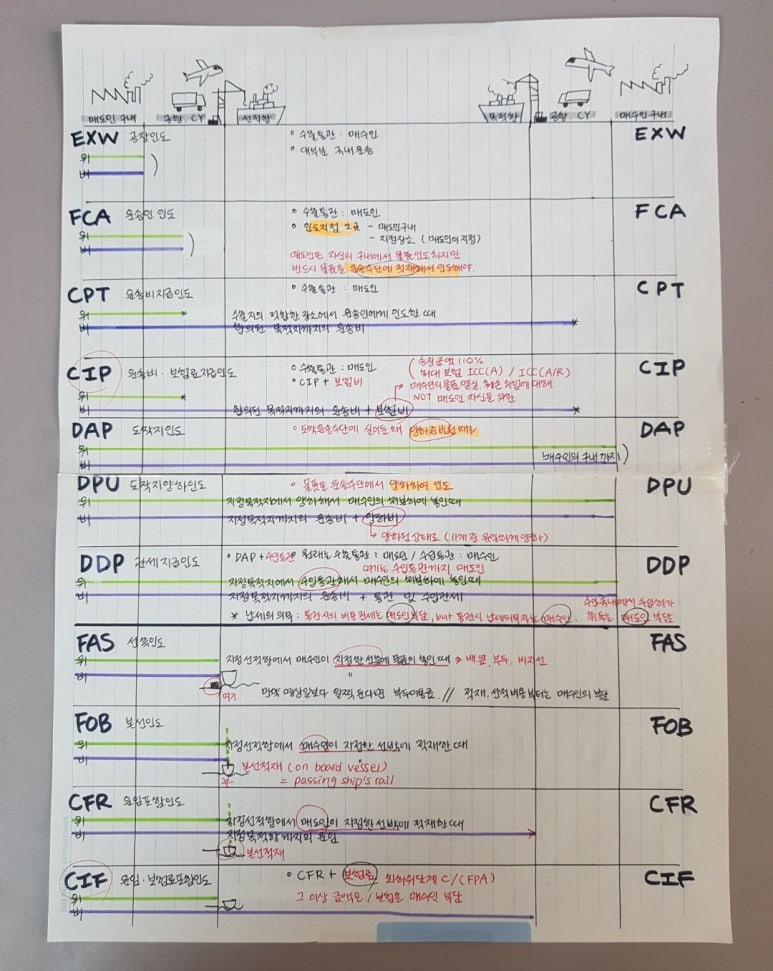 매도인 구내 공항 CY 선적항 목적항 공항 CY 매수인 구내
EXW 공장인도 EXW
수출통관 : 매수인
위
대부분 국내운송
비
FCA 운송인 인도 FCA
수출통관 : 매도인
위
인도지점 2곳 - 매도인구내
비
- 지정장소 ( 매도인이 지정)
매도인은 자신의 구내에서 물품인도하지만
반드시 물품을 운송수단에 적재해서 인도해야.
CPT 운송비지급인도 CPT
수출통관 : 매도인
위 수출지의 적합한 장소에서 운송인에게 인도한 때
비 합의된 목적지까지의 운송비
CIP 운송비 · 보험료지급인도 CIP
수출통관 : 매도인
CIP + 보험비
송장금액 110%
최대 보험 ICC(A) / ICC(A/R)
→ 매수인의 물품 멸실, 훼손 위험에 대해.
NOT 매도인 자신을 위한
위
비 합의된 목적지까지의 운송비 + 보험비
DAP 도착지인도 DAP
도착운송수단에 실어둔 채
위
비 매수인의 구내 까지)
DPU 도착지양하인도 DPU
물품을 운송수단에서 양하하여 인도
위 지정목적지에서 양하해서 매수인의 처분하에 놓인때
비 지정목적지까지의 운송비 + 양하비
→ 양하된 상태로 (11개 중 유일하게 양하)
DDP 관세지급인도 DDP
DAP + 수입통관
원래는 수출통관 : 매도인 / 수입통관 : 매수인
여기는 수입통관까지 매도인
위 지정목적지에서 수입통관해서 매수인의 처분하에 놓인때
비 지정목적지까지의 운송비 + 통관 및 수입관세
* 납세의 의무 : 통관시의 비용관세는 매도인부담, but 통관시 납세의무자는 매수인.
FAS 선측인도 FAS
위 지정선적항에서 매수인이 지정한 선측에 물품이 놓인 때 → 배 옆, 부두, 바지선
비 "
여기
만약 예상일보다 일찍 온다면 부두이용료 // 적재, 선적비용부터는 매수인의 부담
FOB 본선인도 FOB
위 지정선적항에서 매수인이 지정한 선박에 적재한 때
비
본선적재 (on board vesses)
= passing ship's rail
CFR 운임포함인도 CFR
위 지정선적항에서 매도인이 지정한 선박에 적재한 때
비 지정목적항까지의 운임
본선적재
CIF 운임 · 보험료포함인도 CIF
CFR + 보험료
그 이상 금액은 / 보험은 매수인 부담
위
비